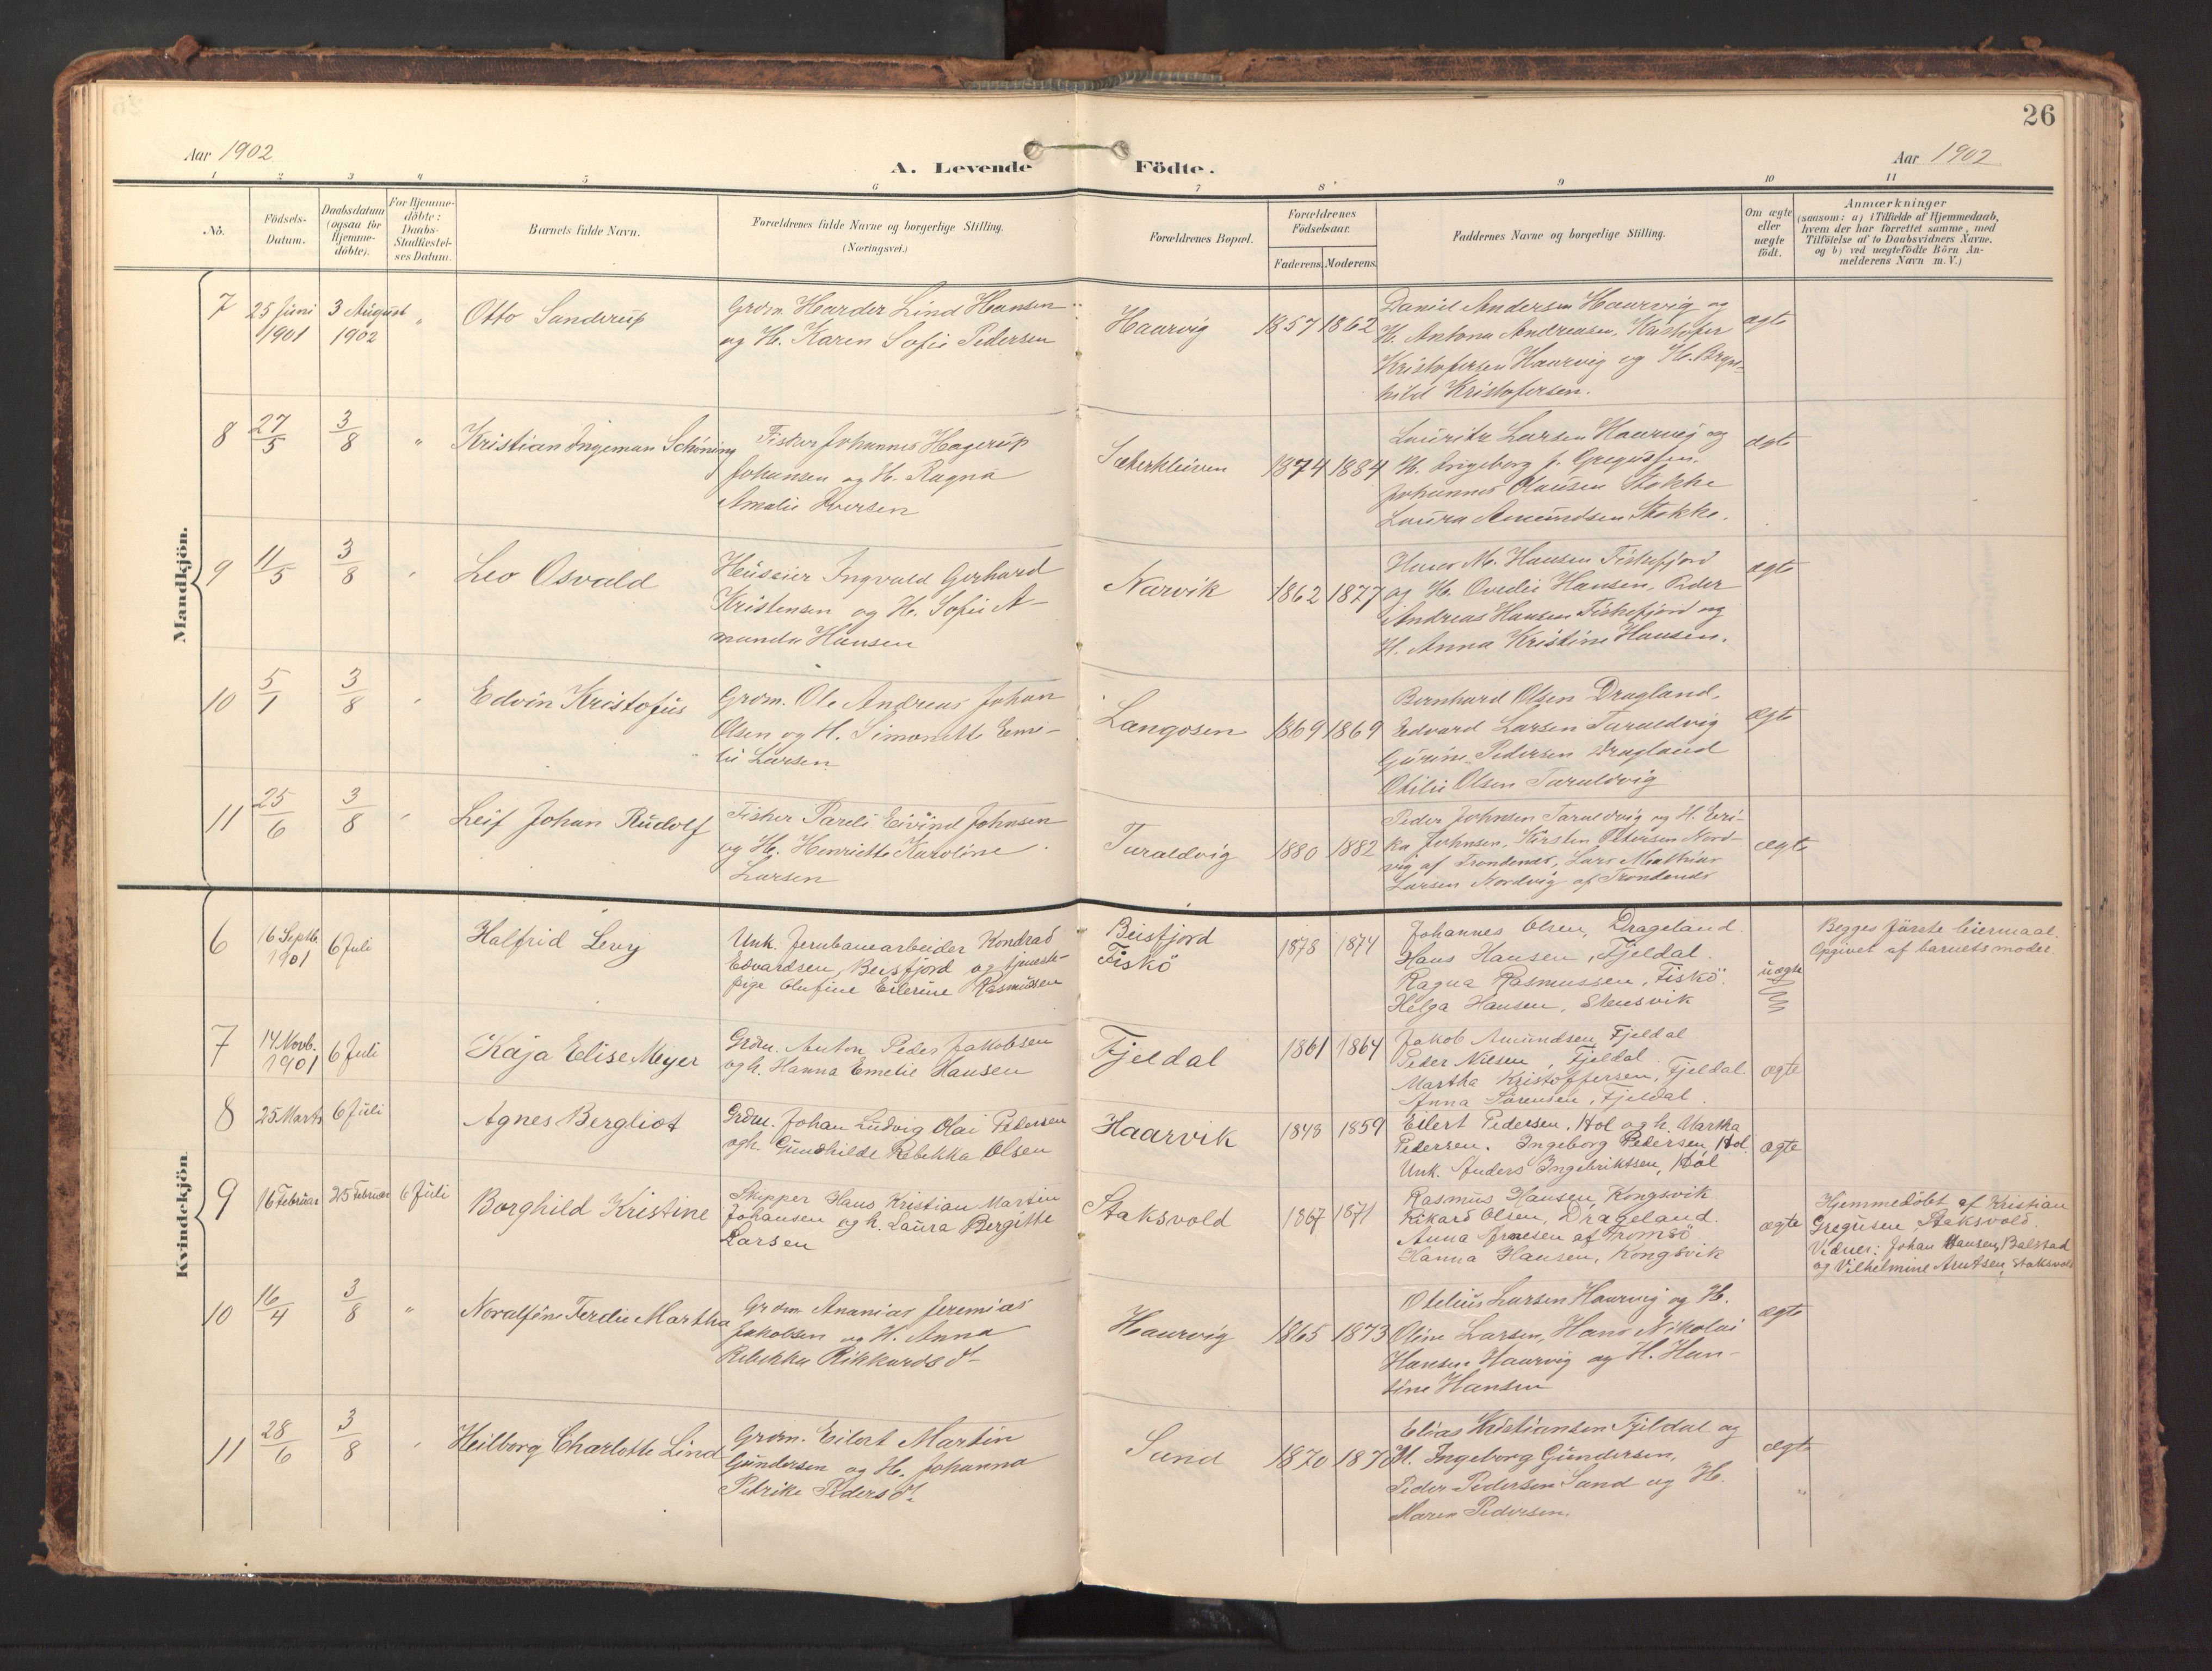 26
Aar 1902
A. Levende Födte.
Aar 1902
1 2 3 4 5 6 7 8 9 10 11
No.
Födsels-Datum.
Daabsdatum (ogsaa for Hjemme-döbte).
For Hjemme-döbte: Daabs-Stadfæstel-ses Datum.
Barnets fulde Navn.
Forældrenes fulde Navne og borgerlige Stilling.
(Næringsvei.)
Forældrenes Bopæl.
Forældrenes Födselsaar.
Faderens. Moderens.
Faddernes Navne og borgerlige Stilling.
Om ægte eller uægte födt.
Anmærkninger
(saasom: a) i Tilfælde af Hjemmedaab, hvem der har forrettet samme, med Tilföielse af to Daabsvidners Navne, og b) ved uægtefödte Börn An-melderens Navn m. V.)
Mandkjön.
7 25 Juni 1901 3 August 1902 " Otto Sanderup
Grdm. Harder Lind Hansen
og H. Karen Sofie Pedersen
Haarvig 1857 1862
Daniel Andersen Haarvig og
H. Antona Andreasen, Kristofer
Kristofersen Haarvig og H. Bergt-
hild Kristofersen.
ægte
8 27/5 3/8 " Kristian Ingeman Schöning
Fisker Johannes Hagerup
Johansen og H. Ragna
Amalie Iversen
Sæterkleiven 1874 1884
Lauritz Larsen Haarvig og
H. Ingeborg f. Gregussen.
Johannes Olausen Stokke
Laura Amundsen Stokke.
ægte
9 11/5 3/8 " Leo Osvald
Huseier Ingvald Gerhard
Kristensen og H. Sofie A-
manda Hansen
Narvik 1862 1877
M. Hansen Fiskefjord
og H. Ovedie Hansen, Peder
Andreas Hansen Fiskefjord og
H. Anna Kristine Hansen.
ægte
10 5/1 3/8 " Edvin Kristofus
Grdm. Ole Andreas Johan
Olsen og H. Simonette Emi-
lie Larsen
Langosen 1869 1869
Bernhard Olsen Dragland,
Edvard Larsen Taraldvig
Gurine Pedersen Dragland
Otilie Olsen Taraldvig
ægte
11 25/6 3/8 " Leif Johan Rudolf
Fisker Pareli Eivind Johnsen
og H. Henriette Karoline
Larsen
Taraldvig 1880 1882
Peder Johnsen Taraldvig og H. Eri-
ka Johnsen, Kirsten Petersen Nord-
vig af Trondenes, Lars Mathias
Larsen Nordvig af Trondenes
ægte
Kvindekjön.
6 16 Septb. 1901 6 Juli Halfrid Levy
Unk. Jernbanearbeider Kondrad
Edvardsen, Beisfjord og tjeneste-
pige Olufine Eilerine Rasmussen
Beisfjord
Fiskö
1878 1874
Johannes Olsen, Drageland.
Hans Hansen, Fjeldal.
Ragna Rasmussen, Fiskö.
Helga Hansen, Stensvik
uægte
Begges förste leiermaal.
Opgivet af barnets moder.
7 14 Novb. 1901 6 Juli Kaja Elise Meyer
Grdm. Anton Peder Jakobsen
og h. Hanna Emelie Hansen
Fjeldal 1861 1864
Jakob Amundsen, Fjeldal
Peder Nilsen, Fjeldal
Martha Kristoffersen, Fjeldal.
Anna Sörensen, Fjeldal.
ægte
8 25 Marts 6 Juli Agnes Bergliot
Grdm. Johan Ludvig Olai Pedersen
og h. Gundhilde Rebekka Olsen
Haarvik 1848 1859
Eilert Pedersen, Hol og h. Martha
Pedersen. Ingeborg Pedersen, Hol.
Unk. Anders Ingebriktsen, Hol
ægte
9 16 Februar 25 Februar 6 Juli Borghild Kristine
Skipper Hans Kristian Martin
Johansen og h. Laura Bergitte
Larsen
Staksvold 1867 1871
Rasmus Hansen, Kongsvik
Rikard Olsen, Drageland.
Anna Arnesen af Tromsö
Hanna Hansen, Kongsvik
ægte
Hjemmedöbt af Kristian
Gregusen, Staksvold.
Vidner: Johan Hansen, Balstad
og Vilhelmine Arntsen, Staksvold
10 16/4 3/8 " Noralfine Ferdie Martha
Grdm Ananias Jeremias
Jakobsen og H. Anna
Rebekka Rikkardsd.
Haarvig 1865 1873
Otelius Larsen Haarvig og H.
Oline Larsen, Hans Nikolai
Hansen Haarvig og H. Han-
sine Hansen
ægte
11 28/6 3/8 " Heilborg Charlotte Lind
Grdm. Eilert Martin
Gundersen og H. Johanna
Petrike Pedersd.
Sand 1870 1870
Elias Kristiansen Fjeldal og
H. Ingeborg Gundersen,
Peder Pedersen Sand og H.
Maren Pedersen.
ægte
"